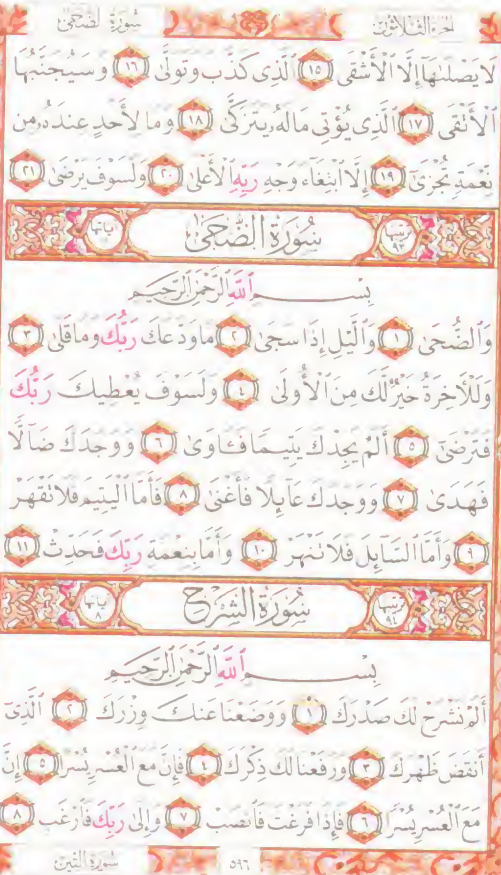 الجزء الثلاثون سورة الضحى
لَا يَصْلَىٰهَآ إِلَّا ٱلْأَشْقَى ١٥ ٱلَّذِى كَذَّبَ وَتَوَلَّىٰ ١٦ وَسَيُجَنَّبُهَا
ٱلْأَتْقَى ١٧ ٱلَّذِى يُؤْتِى مَالَهُۥ يَتَزَكَّىٰ ١٨ وَمَا لِأَحَدٍ عِندَهُۥ مِن
نِّعْمَةٍ تُجْزَىٰٓ ١٩ إِلَّا ٱبْتِغَآءَ وَجْهِ رَبِّهِ ٱلْأَعْلَىٰ ٢٠ وَلَسَوْفَ يَرْضَىٰ ٢١
ترتيبها ٩٣ سُورَةُ الضُّحَىٰ آياتها ١١
بِسْمِ ٱللَّهِ ٱلرَّحْمَٰنِ ٱلرَّحِيمِ
وَٱلضُّحَىٰ ١ وَٱلَّيْلِ إِذَا سَجَىٰ ٢ مَا وَدَّعَكَ رَبُّكَ وَمَا قَلَىٰ ٣
وَلَلْأَخِرَةُ خَيْرٌ لَّكَ مِنَ ٱلْأُولَىٰ ٤ وَلَسَوْفَ يُعْطِيكَ رَبُّكَ
فَتَرْضَىٰٓ ٥ أَلَمْ يَجِدْكَ يَتِيمًا فَـَٔاوَىٰ ٦ وَوَجَدَكَ ضَآلًّا
فَهَدَىٰ ٧ وَوَجَدَكَ عَآئِلًا فَأَغْنَىٰ ٨ فَأَمَّا ٱلْيَتِيمَ فَلَا تَقْهَرْ
٩ وَأَمَّا ٱلسَّآئِلَ فَلَا تَنْهَرْ ١٠ وَأَمَّا بِنِعْمَةِ رَبِّكَ فَحَدِّثْ ١١
ترتيبها ٩٤ سُورَةُ الشَّرْحِ آياتها ٨
بِسْمِ ٱللَّهِ ٱلرَّحْمَٰنِ ٱلرَّحِيمِ
أَلَمْ نَشْرَحْ لَكَ صَدْرَكَ ١ وَوَضَعْنَا عَنكَ وِزْرَكَ ٢ ٱلَّذِىٓ
أَنقَضَ ظَهْرَكَ ٣ وَرَفَعْنَا لَكَ ذِكْرَكَ ٤ فَإِنَّ مَعَ ٱلْعُسْرِ يُسْرًا ٥ إِنَّ
مَعَ ٱلْعُسْرِ يُسْرًا ٦ فَإِذَا فَرَغْتَ فَٱنصَبْ ٧ وَإِلَىٰ رَبِّكَ فَٱرْغَب ٨
٥٩٦ سورة التين